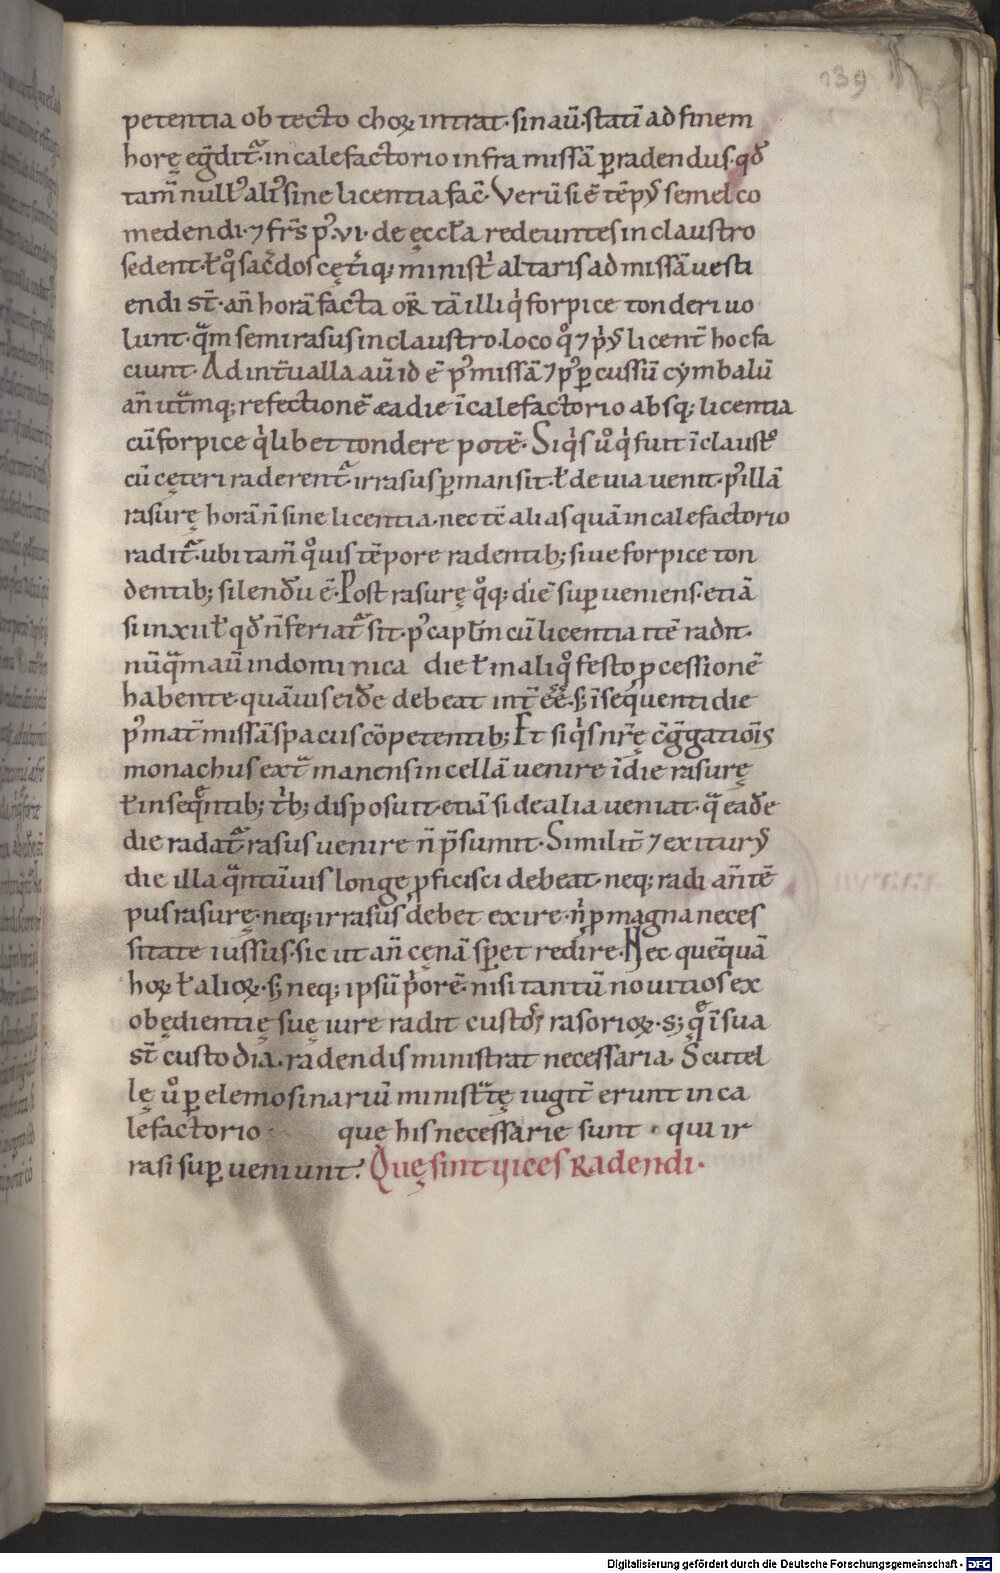 139
petentia ob tecto choꝝ intrat· sin aū·stati ad finem
horę egdit᷑· in calefactorio infra missā ꝑradendus· qđ
tam̄ null᷒ ali᷒ sine licentia fac̄· Verū si ē tēp᷒ semel co
medendi·⁊ fr̄s p᷒·vi· de ęccła redeuntes in claustro
sedent·ł qͦ sac̄dos cęt̄iq; minist̄ altaris ad missā uesti
endi st̄·an̄ horā facta oR̄ tā illi qͥ forpice tonderi uo
lunt· qͣm semirasus in claustro·loco qͦ ⁊ p᷒ licent̄ hoc fa
ciunt· Ad int̄ualla aū id ē p᷒ missā ⁊ p᷒ ꝑcussū cymbalū
an̄ ut̄mq; refectionē ea die ī calefactorio absq; licentia
cū forpice qͥlibet tondere potē· Siqͥs uͦ qͥ fuit ī claustͦ
cū cęteri raderent᷑· irrasus ꝑmansit·ł de uia uenit·p᷒ illā
rasurę horā n̄ sine licentia·nec tē alias quā in calefactorio
radit᷑·ubi tam̄ qͦuis tēpore radentib; siue forpice ton
dentib; silendū ē· Post rasurę qͦq; diē suꝑueniens·etiā
si in xii ł qđ n̄ feriat᷑ sit·p᷒ capłm cū licentia itē radit·
nūqͣm aū in dominica die ł in aliqͦ festo ꝓcessionē
habente·quāuis eiđe debeat int̄ eē·s; ī seqͥuenti die
p᷒ mat̄ missā spacus cōpetentib; Et siqͥs nr̄ę c̄gͣgatiōis
monachus ext̄ manens in cellā uenire ī die rasurę
ł in seqͥntib; t̄b; disposuit·etiā si de alia ueniat· qͣ eađe
die radat᷑·rasus uenire n̄ p̄sumit· Similit̄ ⁊ exitur᷒
die illa qͣntūuis longe ꝓficisci debeat·neq; radi an̄ tē
pus rasurę·neq; irrasus debet exire·n̄ ꝓ magna neces
sitate iussus·sic ut an̄ cęnā sꝑet redire· Nec quēquā
hoꝝ ł alioꝝ·s; neq; ipsū p̄orē·nisi tantū nouitios ex
obędientię suę iure radit custos rasorioꝝ·s; qͥ ī sua
st̄ custodia·radendis ministrat necessaria· Scutel
lę uͦ ꝑ elemosinariū minist̄tę iugit̄ erunt in ca
lefactorio quę his necessarie sunt· qui ir
rasi suꝑueniunt· Quę sint uices Radendi·
Digitalisierung gefördert durch die Deutsche Forschungsgemeinschaft · DFG